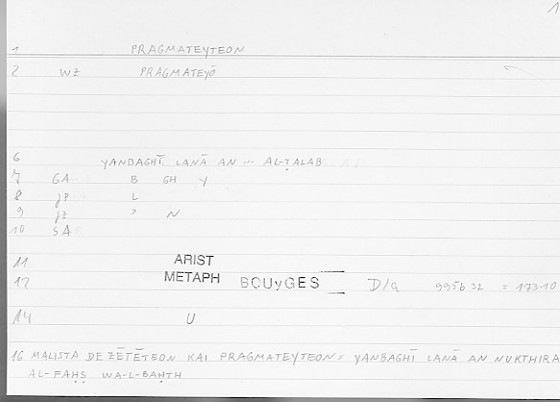 1
1 PRAGMATEYTEON
2 WZ PRAGMATEYŌ
6 YANBAGHĪ LANĀ AN ... AL-ṬALAB
7 GA B GH Y
8 JP L
9 JZ ʾ N
10 SA
11 ARIST
METAPH
12 BOUyGES D/a 995b 32 = 173.10
14 U
16 MALISTA DE ZĒTĒTEON KAI PRAGMATEYTEON = YANBAGHĪ LANĀ AN NUKTHIRA
AL-FAḤṢ WA-L-BAḤTH